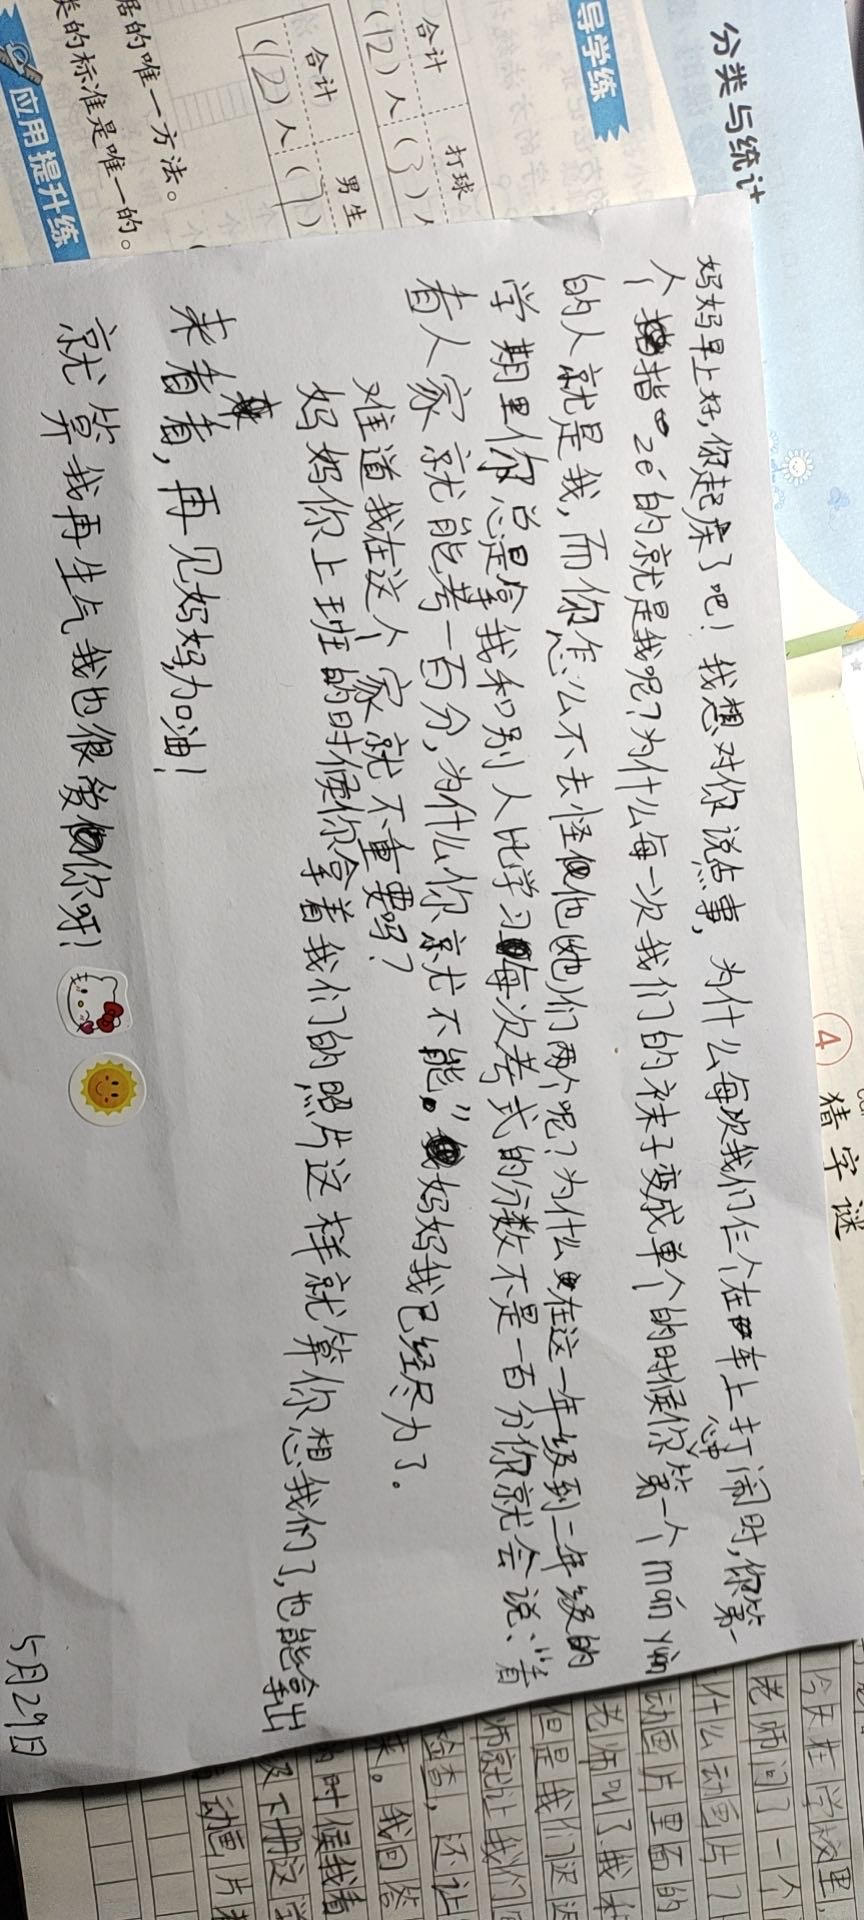 分类与统计
导学练
合计
打球
(12)人
(3)人
合计
男生
(12)人
(7)
居的唯一方法。
类的标准是唯一的。
应用提升练
4
猜字谜
妈妈早上好,你起床了吧!我想对你说点事,为什么每次我们仨个在车上打闹时,你第一
个指zé的就是我呢?为什么每一次我们的袜子变成单个的时候你心中第一个mán yuàn
的人就是我,而你怎么不去怪他(她)们两个呢?为什么在这一年级到二年级的
学期里你总是拿我和别人比学习每次考式的分数不是一百分你就会说、“看
看人家就能考一百分,为什么你就不能。”妈妈我已经尽力了。
难道我在这个家就不重要吗?
妈妈你上班的时候你拿着我们的照片这样就算你想我们了,也能拿出
来看看,再见妈妈,加油!
就算我再生气我也很爱你呀!
5月29日
今天在学校里,
老师问了一个
什么动画片?
动画片里面的
老师叫了我
但是我们迟迟
师就让我们
检查,还让
菜。我回答
的时候我看
级下册这
动画片